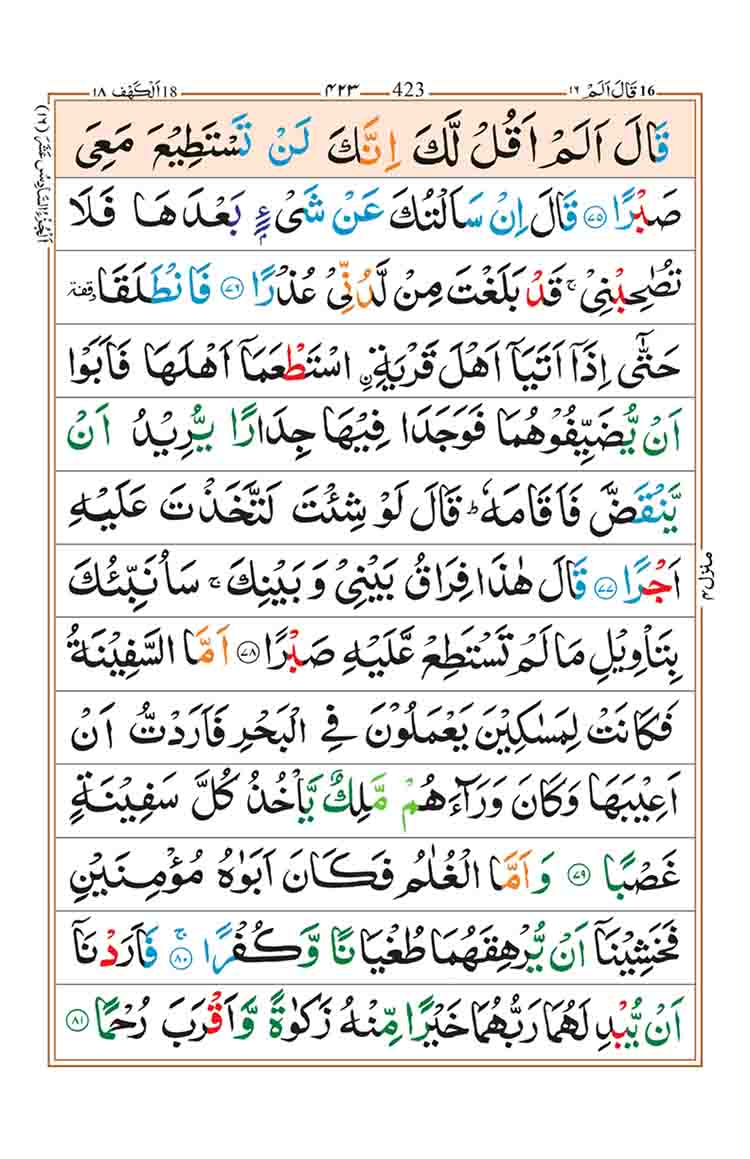 16 قَالَ اَلَمْ ١٦ 423 ٤٢٣ 18 اَلْكَهْف ١٨
اَلْجُزْءُ السَّادِسُ عَشَرَ (١٦)
قَالَ اَلَمْ اَقُلْ لَّكَ اِنَّكَ لَنْ تَسْتَطِيْعَ مَعِیَ
صَبْرًا ﴿٧٥﴾ قَالَ اِنْ سَاَلْتُكَ عَنْ شَیْءٍۭ بَعْدَهَا فَلَا
تُصٰحِبْنِیْ ۚ قَدْ بَلَغْتَ مِنْ لَّدُنِّیْ عُذْرًا ﴿٧٦﴾ فَانْطَلَقَا وقفة
حَتّٰۤی اِذَاۤ اَتَيَاۤ اَهْلَ قَرْيَةِ ِ۟اسْتَطْعَمَاۤ اَهْلَهَا فَاَبَوْا
اَنْ يُّضَيِّفُوْهُمَا فَوَجَدَا فِيْهَا جِدَارًا يُّرِيْدُ اَنْ
يَّنْقَضَّ فَاَقَامَهٗ ؕ قَالَ لَوْ شِئْتَ لَتَّخَذْتَ عَلَيْهِ
اَجْرًا ﴿٧٧﴾ قَالَ هٰذَا فِرَاقُ بَيْنِیْ وَ بَيْنِكَ ۚ سَاُنَبِّئُكَ
بِتَاْوِيْلِ مَا لَمْ تَسْتَطِعْ عَّلَيْهِ صَبْرًا ﴿٧٨﴾ اَمَّا السَّفِيْنَةُ
فَكَانَتْ لِمَسٰكِيْنَ يَعْمَلُوْنَ فِی الْبَحْرِ فَاَرَدْتُّ اَنْ
اَعِيْبَهَا وَكَانَ وَرَآءَهُمْ مَّلِكٌ يَّاْخُذُ كُلَّ سَفِيْنَةٍ
غَصْبًا ﴿٧٩﴾ وَاَمَّا الْغُلٰمُ فَكَانَ اَبَوٰهُ مُؤْمِنَيْنِ
فَخَشِيْنَاۤ اَنْ يُّرْهِقَهُمَا طُغْيَانًا وَّكُفْرًا ﴿٨٠﴾ ۚ فَاَرَدْنَاۤ
اَنْ يُّبْدِ لَهُمَا رَبُّهُمَا خَيْرًا مِّنْهُ زَكٰوةً وَّاَقْرَبَ رُحْمًا ﴿٨١﴾
منزل ٤